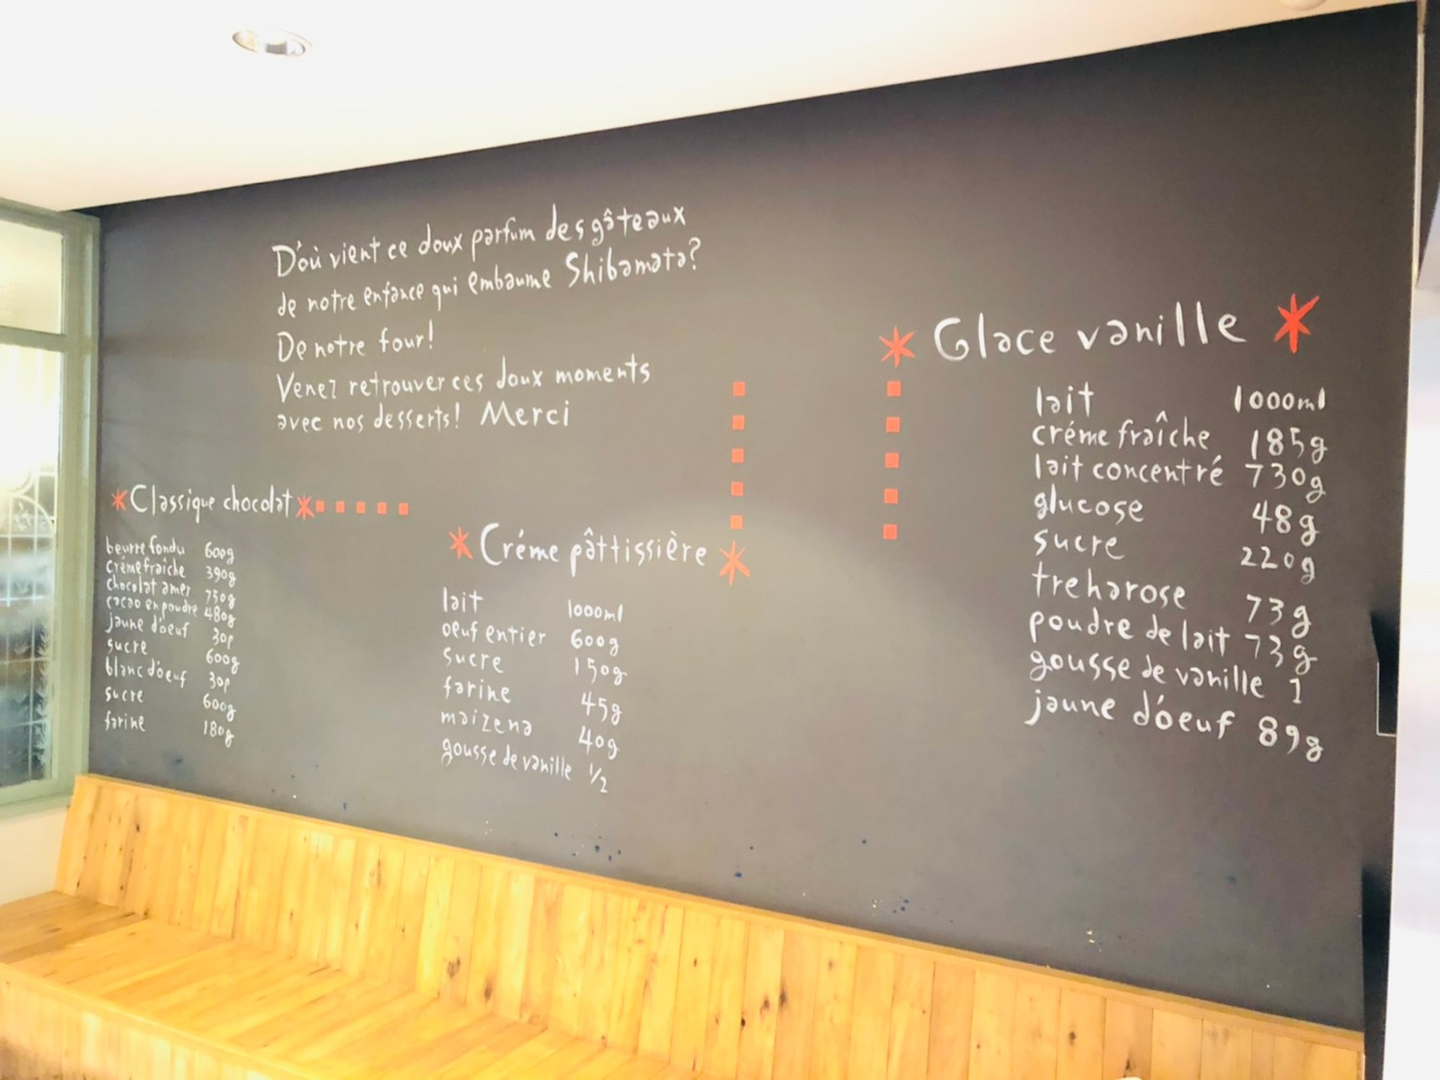 D'où vient ce doux parfum des gâteaux
de notre enfance qui embaume Shibamata?
De notre four!
Venez retrouver ces doux moments
avec nos desserts! Merci
Classique chocolat
beurre fondu 600g
crème fraiche 390g
chocolat amer 750g
cacao en poudre 480g
jaune d'oeuf 30p
sucre 600g
blanc d'oeuf 30p
sucre 600g
farine 180g
Créme pâttissière
lait 1000ml
oeuf entier 600g
sucre 150g
farine 45g
maizena 40g
gousse de vanille 1/2
Glace vanille
lait 1000ml
créme fraîche 185g
lait concentré 730g
glucose 48g
sucre 220g
treharose 73g
poudre de lait 73g
gousse de vanille 1
jaune d'oeuf 89g